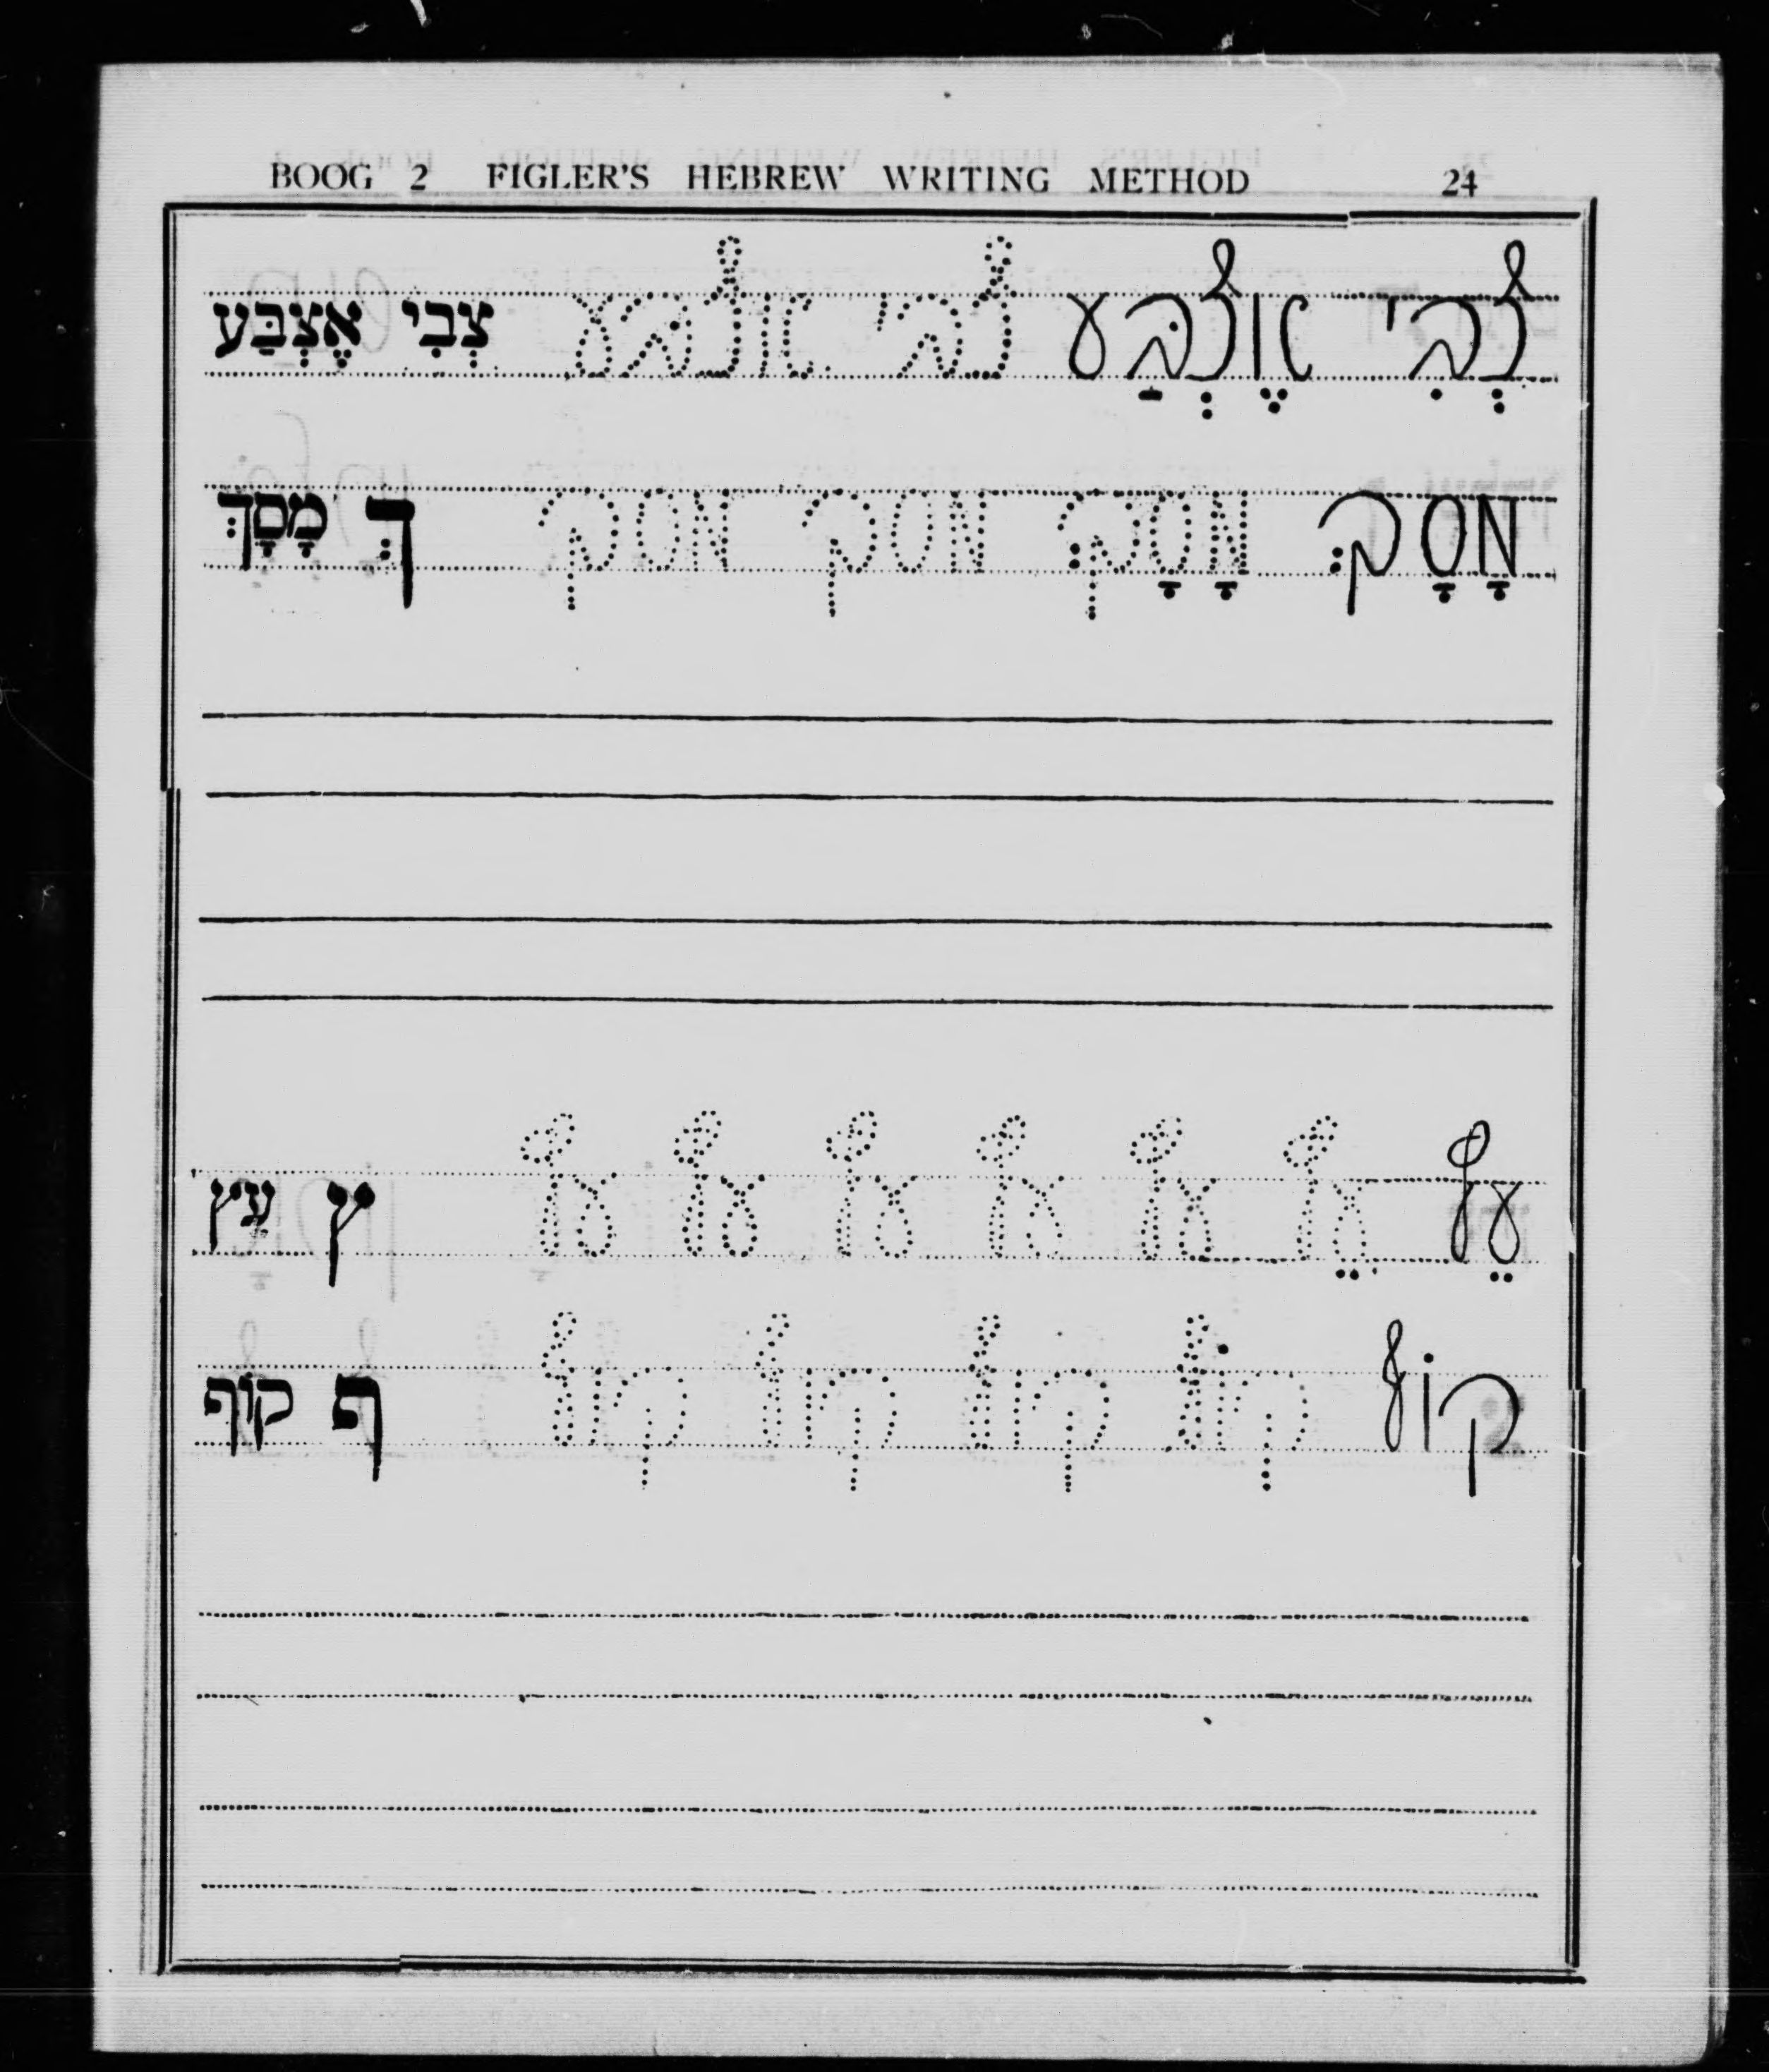 BOOG 2 FIGLER'S HEBREW WRITING METHOD 24
צְבִי אֶצְבַּע צבי אצבע צְבִי אֶצְבַּע
מָסָךְ מָסָךְ מסך מסך ךְ מָסָךְ
עֵץ עֵץ עץ עץ עץ עץ עץ ץ עֵץ
קוֹף קוֹף קוף קוף קוף ף קוֹף